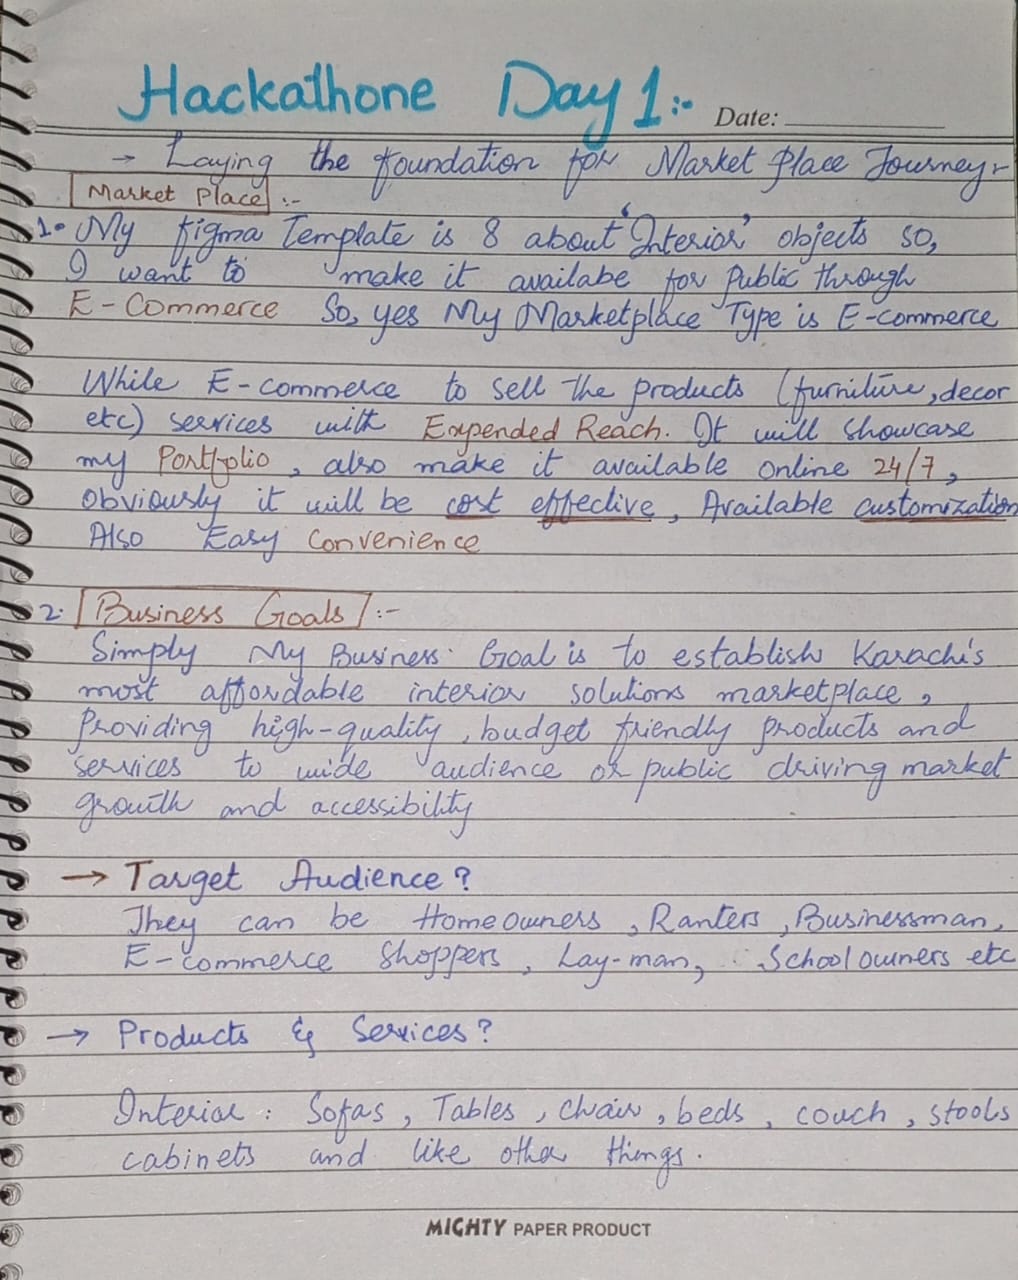 Hackathone Day 1:-
Date:
→ Laying the foundation for Market Place Journey-
Market Place :-
1- My figma Template is 8 about 'Interior' objects so,
I want to make it availabe for Public through
E-Commerce So, yes My Marketplace Type is E-commerce
While E-commerce to sell the products (furniture, decor
etc) services with Expended Reach. It will showcase
my Portfolio, also make it available online 24/7,
obviously it will be cost effective, Available customization
Also Easy Convenience
2. Business Goals :-
Simply My Business Goal is to establish Karachi's
most affordable interior solutions marketplace,
Providing high-quality, budget friendly products and
services to wide audience or public driving market
growth and accessibility
→ Target Audience?
They can be Homeowners, Ranters, Businessman,
E-commerce Shoppers, Lay-man, School owners etc
→ Products & Services?
Interior: Sofas, Tables, chair, beds, couch, stools
cabinets and like other things.
MIGHTY PAPER PRODUCT